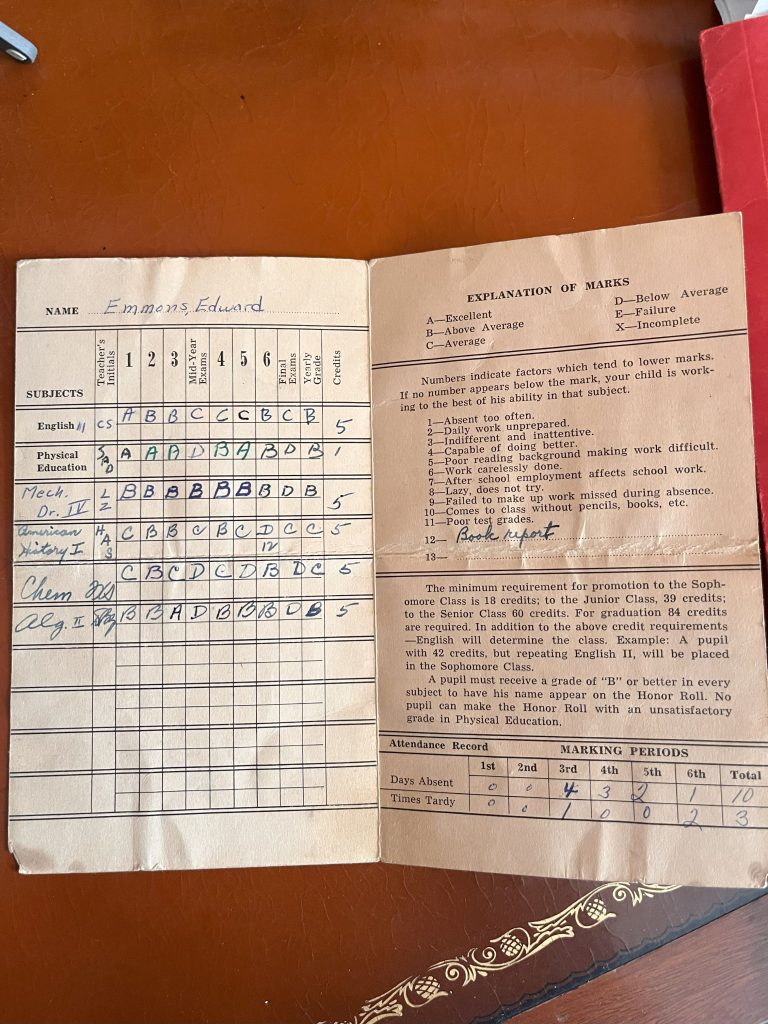 NAME Emmons, Edward
SUBJECTS Teacher's Initials 1 2 3 Mid-Year Exams 4 5 6 Final Exams Yearly Grade Credits
English 11 CS A B B C C C B C B 5
Physical Education SAD A A A D B A B D B 1
Mech. Dr. IV LZ B B B B B B B D B 5
American History I HAS C B B C B C D C C 5
12
Chem C B C D C D B D C 5
Alg. II B B A D B B B D B 5
EXPLANATION OF MARKS
A—Excellent
B—Above Average
C—Average
D—Below Average
E—Failure
X—Incomplete
Numbers indicate factors which tend to lower marks.
If no number appears below the mark, your child is work-
ing to the best of his ability in that subject.
1—Absent too often.
2—Daily work unprepared.
3—Indifferent and inattentive.
4—Capable of doing better.
5—Poor reading background making work difficult.
6—Work carelessly done.
7—After school employment affects school work.
8—Lazy, does not try.
9—Failed to make up work missed during absence.
10—Comes to class without pencils, books, etc.
11—Poor test grades.
12— Book report
13—
The minimum requirement for promotion to the Soph-
omore Class is 18 credits; to the Junior Class, 39 credits;
to the Senior Class 60 credits. For graduation 84 credits
are required. In addition to the above credit requirements
—English will determine the class. Example: A pupil
with 42 credits, but repeating English II, will be placed
in the Sophomore Class.
A pupil must receive a grade of "B" or better in every
subject to have his name appear on the Honor Roll. No
pupil can make the Honor Roll with an unsatisfactory
grade in Physical Education.
Attendance Record MARKING PERIODS
1st 2nd 3rd 4th 5th 6th Total
Days Absent 0 0 4 3 2 1 10
Times Tardy 0 0 1 0 0 2 3